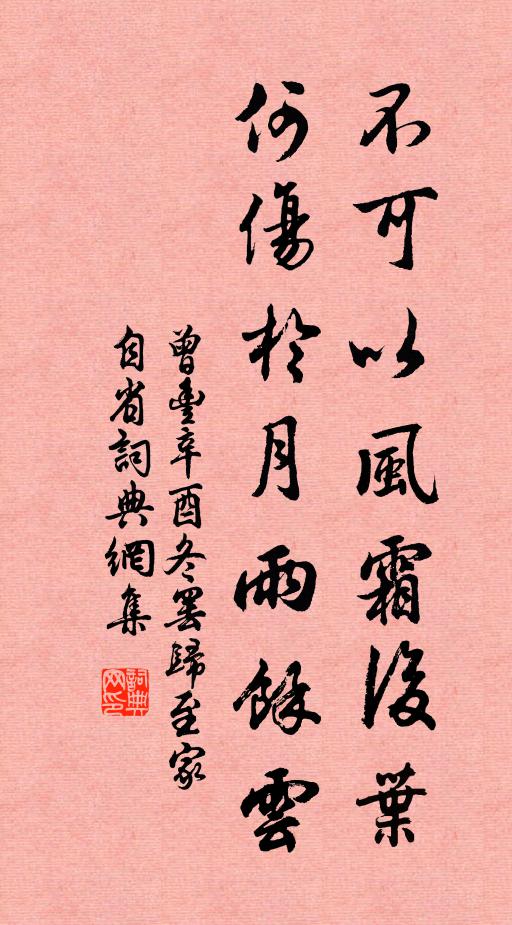 不可以風霜後葉
何傷於月雨餘雲
曾豐辛酉冬罢歸至家
自省詞典網集
詞典网印